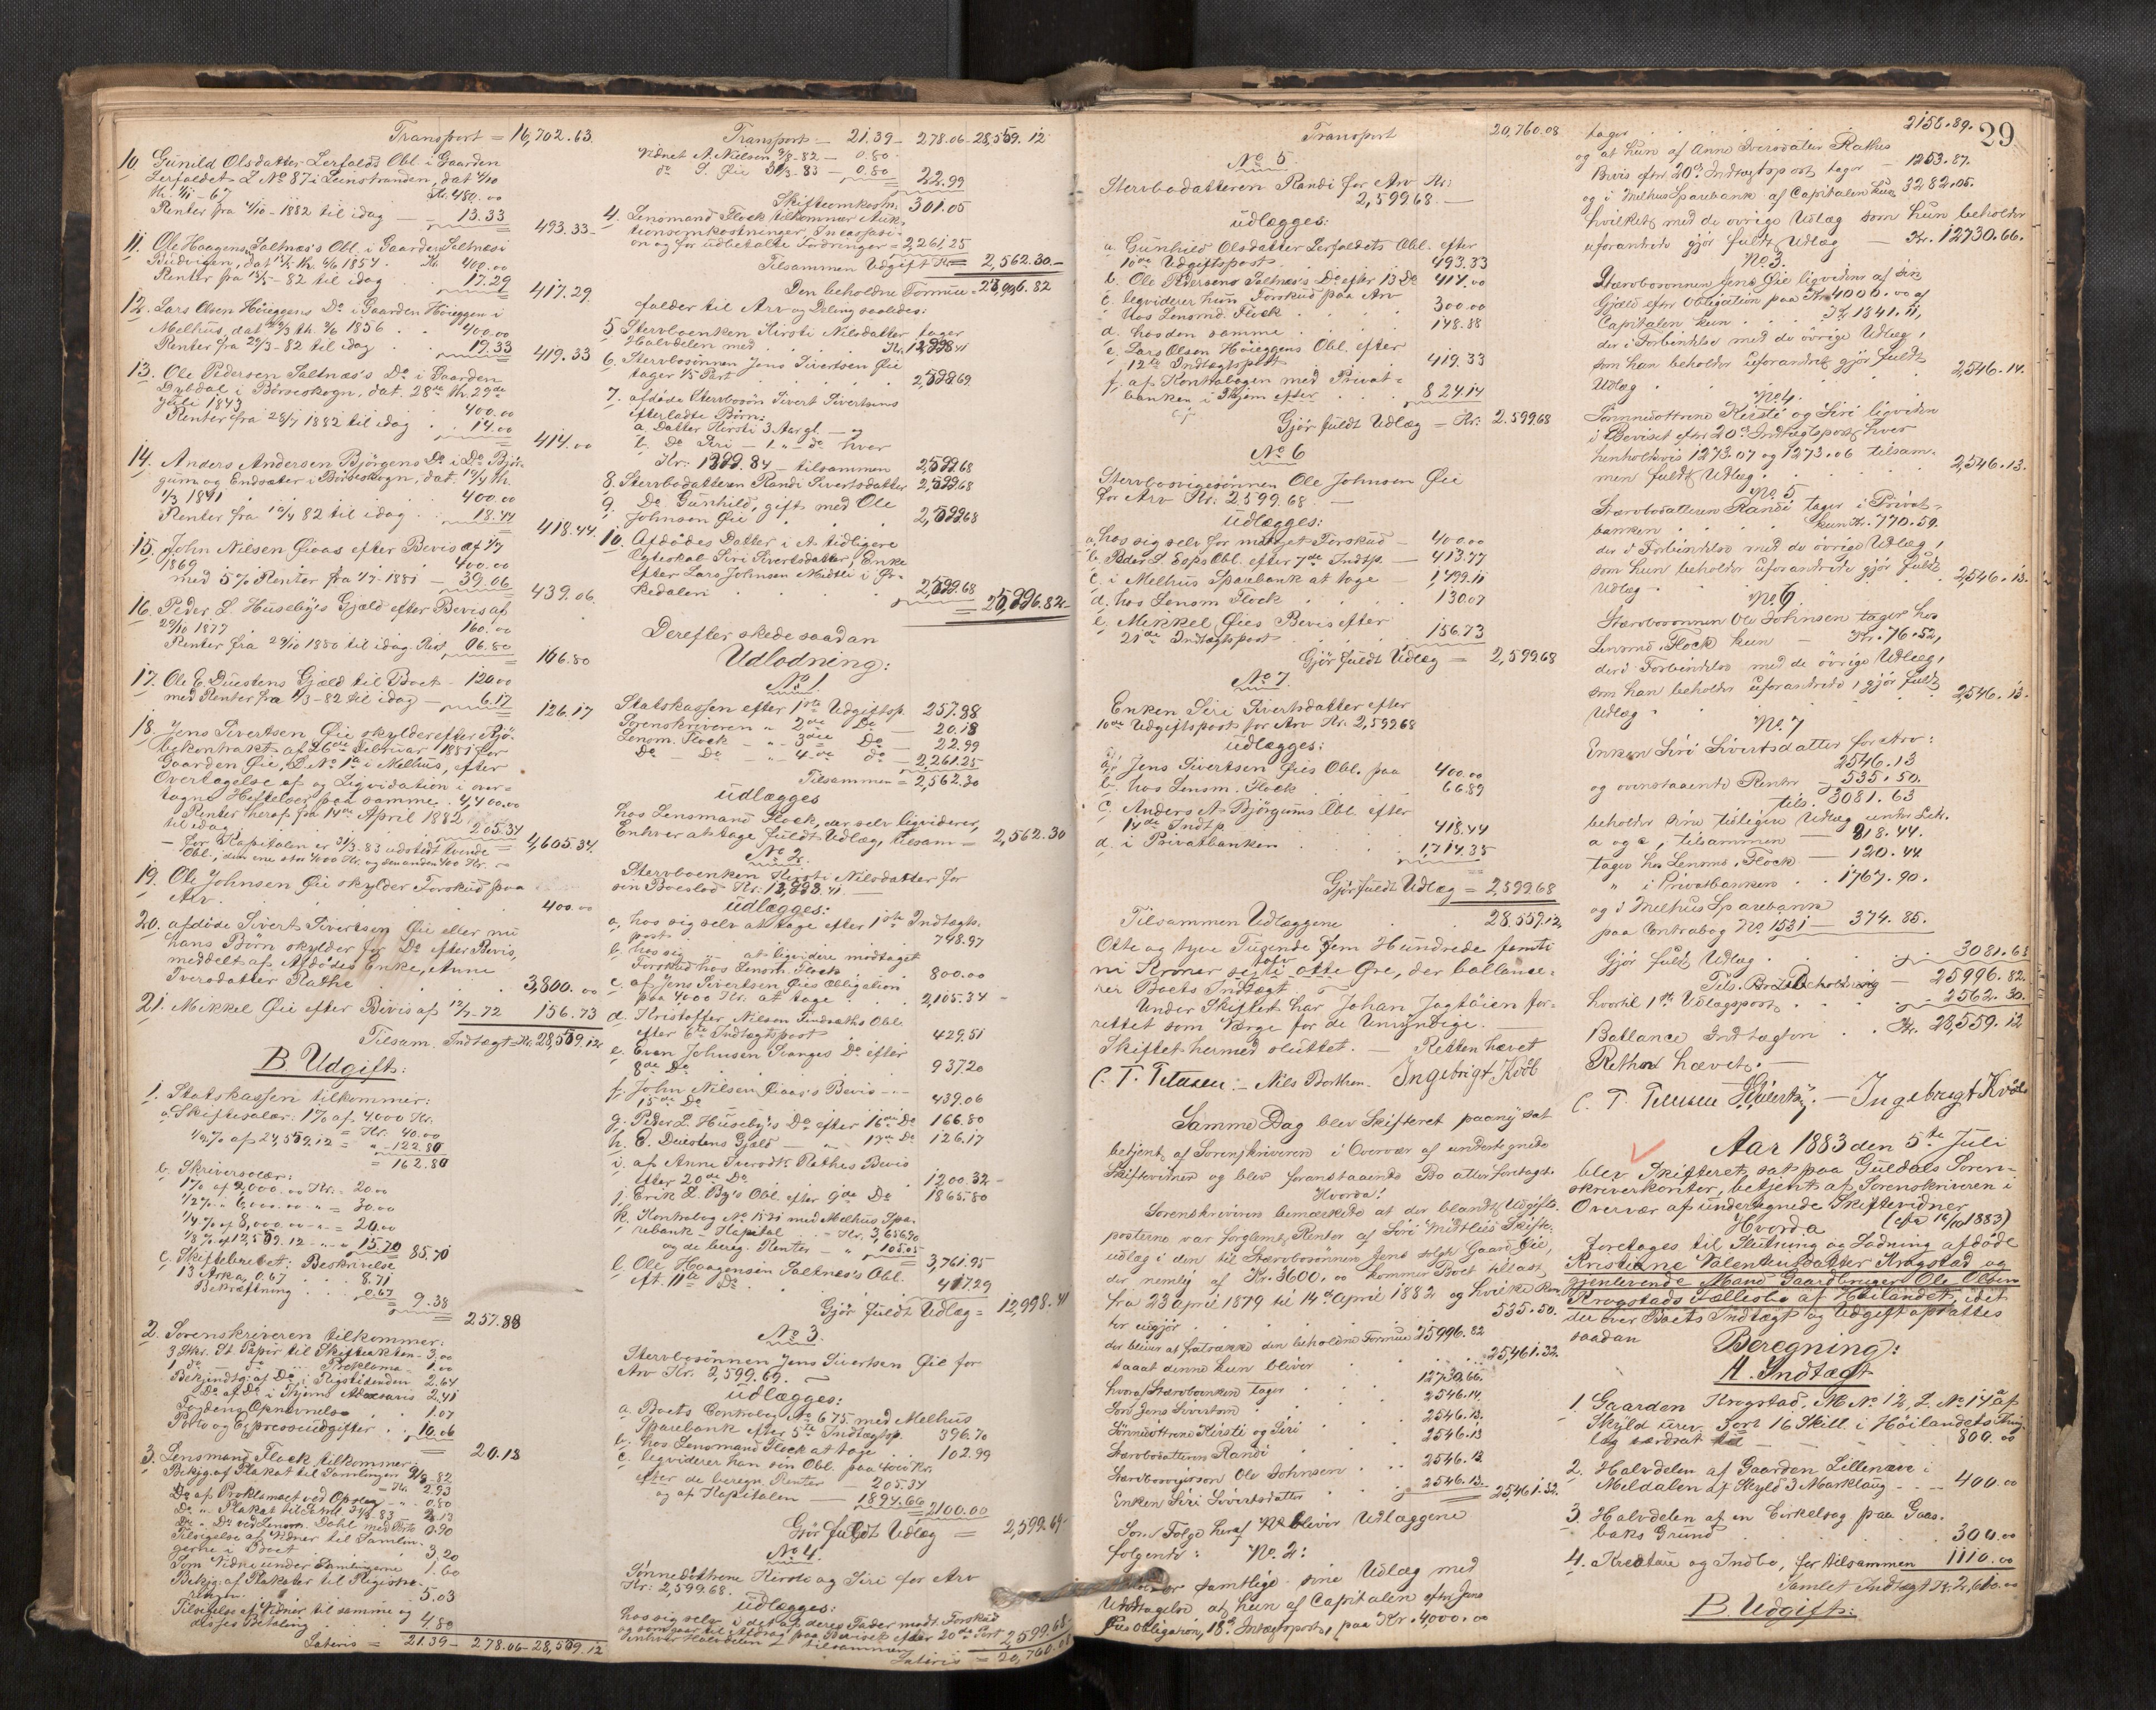 Transport = 16,702.63
10. Gunild Olsdatter Lerfalds Obl. i Gaarden
Lerfaldet L No 87 i Leinstranden, dat 4/10
th. 4/11 - 67 Kr. 480.00
Renter fra 4/10 - 1882 til idag - 13.33
493.33
11. Ole Haagensen Saltnæs's Obl. i Gaarden Saltnæs i
Budvigen, dat 15/5 th. 4/6 1857. Kr. 400.00
Renter fra 15/5 - 82 til idag 17.29
417.29.
12. Lars Olsen Höieggens Do i Gaarden Höieggen i
Melhus, dat 29/3 th. 3/6 1856 . . 400.00
Renter fra 29/3 - 82 til idag . . 19.33
419.33
13. Ole Pedersen Saltnæs's Do i Gaarden
Dybdal i Börseskogn, dat. 28de th. 29de
Juli 1843 . . 400.00
Renter fra 28/7 1882 til idag . . 14.00
414.00
14. Anders Andersen Bjørgens Do i Do Bjør-
gum og Endsæter i Börseskogn, dat. 19/4 th.
1/3 1871 . . 400.00
Renter fra 19/4 82 til idag . . 18.44
418.44
15. John Nilsen Öiaas efter Bevis af 1/7
1869 . . 400.00
med 5% Renter fra 1/7 - 1881 - 39.06
439.06.
16. Peder L. Huseby's Gjæld efter Bevis af
29/10 1877 160.00
Renter fra 29/10 1880 til idag. Rest 06.80
166.80
17. Ole E. Duestens Gjæld til Boet - 120.00
med Renter fra 1/3 - 82 til idag - 6.17
126.17
18. Jens Sivertsen Öie skylder efter Kjö-
bekontrakt af 26de Februar 1881 for
Gaarden Öie, L No 1a i Melhus, efter
Overtagelse af og Ligvidation i over-
tagne Heftelser paa samme 4,400.00
Renter heraf fra 14de April 1882
til idag 205.34
4,605.34.
- for Kapitalen er 31/3.83 udstedt tvende
Obl., den ene stor 4000 Kr. og den anden 400 Kr. -
19. Ole Johnsen Öie skylder Forskud paa
Arv . . 400.00
20. afdöde Sivert Sivertsen Öie eller nu
hans Börn skylder for Do efter Bevis,
meddelt af Afdödes Enke, Anne
Iversdatter Rathe . . 3,800.00
21. Mikkel Öie efter Bevis af 12/7 - 72 156.73
Tilsam. Indtægt Kr. 28,559.12
B. Udgift:
1. Statskassen tilkommer:
a. Skiftesalær: 1% af 4000 Kr.
= Kr. 40.00
1/2 % af 24,559.12 = " - 122.80
= 162.80
b. Skriversalær:
1% af 2,000.00 Kr. = 20.00
1/2 % " 6,000.00 - " = 30.00
1/4 % af 8,000.00 - " = 20.00
1/8 % af 12,559.12 - " - 15.70 85.70
c. Skiftebrevet: Beskrivelse
13 Ark a 0.67 . . 8.71
Bekræftning . . 0.67
9.38
257.88
2. Sorenskriveren tilkommer:
3 Stkr. St. Papir til Skifteakten - 3.00
1 do - do ... Proklama - 1.00
Bekjendtg: af Do i Rigstidenden 2.64
Do af Do i Thjems Adresseavis 2.41
Fogdens Opnævnelse . . 1.07
Porto og Expresseudgifter . . 10.06
20.18
3. Lensmand Flock tilkommer:
Bekjg. af Plakat til Samlingen 9/8 82
- Kr. 2.93
Do af Proklamaet ved Opslag - " - 0.80
Do " Plakat til Saml. 31/3 - 83 2.13
Do " Do ved Lensm. Dahl med Porto 0.90
Tilsigelse af Vidner til Samlin-
gerne i Boet . . 3.20
Som Vidne under Samlingerne 1.60
Bekjg: af Plakater til Registre-
ringen . . 5.03
Tilsigelse af Vidner til samme og
disses Betaling . . 4.80
Lateris = 21.39 - 278.06 - 28,559.12
Transport - 21.39 - 278.06 - 28,559.12
Vidnet A. Nielsen 9/8 - 82 - 0.80
do S. Öie 31/3 - 83 - 0.80 22.99
Skifteomkostn. 301.05
4. Lensmand Flock tilkommer Auk-
tionsomkostninger, Incassasi-
on og for udbetalte Fordringer = 2,261.25
Tilsammen Udgift Kr. = 2,562.30 -
Den beholdne Formue = 25,996.82
falder til Arv og Deling saaledes:
5. Stervboenken Kirsti Nilsdatter tager
Halvdelen med . . Kr. 12,998.41
6. Stervbosönnen Jens Sivertsen Öie
tager 1/5 Part . . 2,599.69.
7. afdöde Stervbosön Sivert Sivertsens
efterladte Börn:
a. Datter Kirsti 3 Aar gl. - og
b. Do Siri - 1 " - do hver
Kr: 1299.84 - tilsammen 2,599.68
8. Stervbodatteren Randi Sivertsdatter 2,599.68
9. Do Gunhild, gift med Ole
Johnsen Öie . . 2,599.68
10. Afdödes Datter i et tidligere
Ægteskab Siri Sivertsdatter, Enke
efter Lars Johnsen Midtli i Or-
kedalen . . 2,599.68
= 25,996.82 -
Derefter skede saadan
Udlodning:
No 1.
Statskassen efter 1ste Udgiftsp. 257.88
Sorenskriveren " 2den Do - 20.18
Lensm. Flock - " - 3die Do - 22.99
Do - Do - " - 4de do - 2,261.25
Tilsammen = 2,562.30
udlægges
hos Lensmand Flock, der selv ligviderer,
Enhver at tage fuldt Udlæg, tilsam = 2,562.30
No 2.
Stervboenken Kirsti Nilsdatter for
sin Boeslod Kr: 12,998.41 -
udlægges:
a. hos sig selv at tage efter 1ste Indtægts-
post . . 748.97
b. hos sig - at ligvidere modtaget
Forskud hos Lensm. Flock . . 800.00
c. af Jens Sivertsen Öies Obligation
paa 4000 Kr. at tage . . 2,105.34 -
d. Kristoffer Nilsen Sundsæths Obl.
efter 6te Indtægtspost . . 429.51
e. Even Johnsen Svanges Do efter
8de Do . . 937.20
f. John Nilsen Öiaas's Bevis - " -
15de Do . . 439.06
g. Peder L. Huseby's Do efter 16de Do 166.80
h. E. Duestens Gjæld - " - 17de Do 126.17
i. af Anne Iversdtr. Rathes Bevis
efter 20de Do . . 1200.32 -
j. Erik L. By's Obl. efter 9de Do 1865.80
k. Kontrabog No 1531 med Melhus Spa-
rebank - Kapital - = Kr. 3,656.90
og de bereg. Renter - " 105.05
3,761.95
l. Ole Haagensen Saltnæs's Obl.
eft. 11te Do . . 417.29
Gjør fuldt Udlæg = 12,998.41
No 3.
Stervbosönnen Jens Sivertsen Öie for
Arv Kr. 2,599.69. -
udlægges:
a. Boets Contrabog No 675 med Melhus
Sparebank efter 5te Indtægtsp. 396.70
b. hos Lensmand Flock at tage . . 102.99
c. ligviderer han sin Obl. paa 4000 Kr.
efter de beregn. Renter - 205.34
og af Kapitalen - 1894.66 2100.00
Gjør fuldt Udlæg = 2,599.69
No 4.
Sönnedöttrene Kirsti og Siri for Arv
Kr: 2,599.68.
udlægges:
hos sig selv, i det af deres Fader modt. Forskud
og som gaar til Afdrag paa Beviset efter 20de Post
enhver Halvdelen tilsammen 2,599.68
Lateris = 20,760.08
Transport 20,760.08
No 5.
Stervbodatteren Randi for Arv Kr:
2,599.68. -
udlægges:
a. Gunhild Olsdatter Lerfaldets Obl. efter
10de Udgiftspost . . 493.33
b. Ole Pedersens Saltnæs's Do efter 13 Do 414.00
c. ligviderer hun Forskud paa Arv
hos Lensmd. Flock . . 300.00
d. hos den samme . . 148.88
e. Lars Olsen Höieggens Obl. efter
12te Indtægtspost . . 419.33
f. af Kontrabogen med Privat-
banken i Thjem efter . . 824.14
Gjør fuldt Udlæg = Kr: 2.599.68
No 6
Stervbosvigersönnen Ole Johnsen Öie
for Arv Kr: 2599.68 -
udlægges:
a. hos sig selv for modtaget Forskud - 400.00
b. Peder L. Esps Obl. efter 7de Indtp. - 413.77
c. i Melhus Sparebank at tage - 1,499.11
d. hos Lensm Flock . . 130.07
e. Mikkel Öies Bevis efter
21de Indtægtspost . . 156.73
Gjør fuldt Udlæg = 2,599.68
No 7.
Enken Siri Sivertsdatter efter
10de Udgiftspost for Arv Kr. 2,599.68
udlægges:
a. Jens Sivertsen Öies Obl. paa 400.00
b. hos Lensm. Flock . . 66.89
c. Anders A. Bjørgums Obl. efter
14de Indtp. . . 418.44
d. i Privatbanken . . 1,714.35
Gjør fuldt Udlæg = 2,599.68
Tilsammen Udlæggene . . 28.559.12,
Otte og tyve Tusende Fem Hundrede femti
ni Kroner tolv Øre, der ballance-
rer Boets Indtægt. -
Under Skiftet har Johan Jagtöien for-
rettet som Værge for de Umyndige.
Skiftet hermed sluttet. - Retten hævet
C. T. Petersen. - Nils Borthen. Ingebrigt Kvöb
Samme Dag blev Skifteret paany sat
betjent af Sorenskriveren i Overvær af undertegnede
Skiftevidner og blev foranstaaende Bo atter foretaget.
Hvorda:
Sorenskriveren bemærkede at der blandt Udgifts-
posterne var forglemt Renter af Siri Midtlies Skifte-
udlæg i den til Stervbosönnen Jens solgte Gaard Öie,
der nemlig af Kr. 3600.00 kommer Boet tillast
fra 23 april 1879 til 14de April 1882 og hvilke Ren-
ter udgjør . . 535.50.
der bliver at fratrække den beholdne Formue 25996.82
saaat denne kun bliver . . 25,461.32.
hvoraf Stervboenken tager . . 12730.66.
Sön Jens Sivertsen . . 2546.14.
Sönnedöttrene Kirsti og Siri . . 2546.13.
Stervbodatteren Randi . . 2546.13
Stervbosvigersön Ole Johnsen . . 2546.13
Enken Siri Sivertsdatter . . 2546.13. 25,461.32.
Som Følge heraf bliver Udlæggene
følgende: No. 2:
samtlige sine Udlæg med
Undtagelse at hun af Capitalen efter Jens
Öies Obligation, 18de Indtægtspost, paa Kr. 4,000.00
29
tager . . 2156.89.
og at hun af Anne Iversdatter Rathes
Bevis efter 20de Indtægtspost tager - 1253.87.
og i Melhus Sparebank af Capitalen kun 3282.05.
hvilket med de övrige Udlæg som hun beholder
uforandrede gjør fuldt Udlæg - Kr. 12730.66.
No 3.
Stervbosönnen Jens Öie ligviderer af sin
Gjæld efter Obligation paa Kr. 4000.00 af
Capitalen kun . . Kr. 1841.11,
der i Forbindelse med de övrige Udlæg,
som han beholder uforandret gjør fuldt
Udlæg . . 2,546.14.
No 4.
Sönnedöttrene Kirsti og Siri ligviderer
i Beviset efter 20de Indtægtspost hver
henholdsvis 1273.07 og 1273.06 tilsam-
men fuldt Udlæg. 2,546.13.
No 5
Stervbodatteren Randi tager i Privat-
banken . . kun Kr. 770.59.
der i Forbindelse med de övrige Udlæg,
som hun beholder uforandrede gjør fuldt
Udlæg . . 2,546.13.
No 6.
Stervbosönnen Ole Johnsen tager hos
Lensmd. Flock kun - Kr. 76.52,
der i Forbindelse med de övrige Udlæg,
som han beholder uforandrede, gjør fuldt
Udlæg . . 2546.13.
No 7
Enken Siri Sivertsdatter for Arv:
2546.13
og ovenstaaende Renter - 535.50.
tils. 3081.63
beholder sine tidligere Udlæg under Litr.
a og c, tilsammen - 818.44.
tager hos Lensmd. Flock - 120.44
" i Privatbanken . . 1767.90.
og i Melhus Sparebank
paa Contrabog No 1531 - 374.85.
Gjør fuldt Udlæg . . 3081.63
Tils. Beholdning - 25996.82.
hvortil 1ste Udlægspost . . 2562.30.
Ballance Indtægten . . Kr. 28,559.12
Retten hævet. -
C. T. Petersen - Ingebrigt Kvöb
Aar 1883 den 5te Juli
blev Skifteret sat paa Guldals Soren-
skriverkontor, betjent af Sorenskriveren i
Overvær af undertegnede Skiftevidner
Hvorda (cfr 14/10 1883)
foretoges til Slutning og Lodning afdöde
Kristiane Valentinsdatter Krogstad og
gjenlevende Mand Gaardbruger Ole Olsen
Krogstads Fællesbo af Höilandet, idet
der over Boets Indtægt og Udgift opsattes
saadan Beregning:
A. Indtægt
1. Gaarden Krogstad, M No 12, L. No 17a af
Skyld urev. 16 Skill. i Höilandets Thing-
lag værdsat til - 800.00
2. Halvdelen af Gaarden Lilleneve i
Meldalen af Skyld 3 Marklaug - 400.00
3. Halvdelen af en Cirkelsag paa Gaas-
baks Grund . . 300.00
4. Kreature og Indbo, for tilsammen 1110.00
Samlet Indtægt Kr. 2,610.00
B. Udgift: